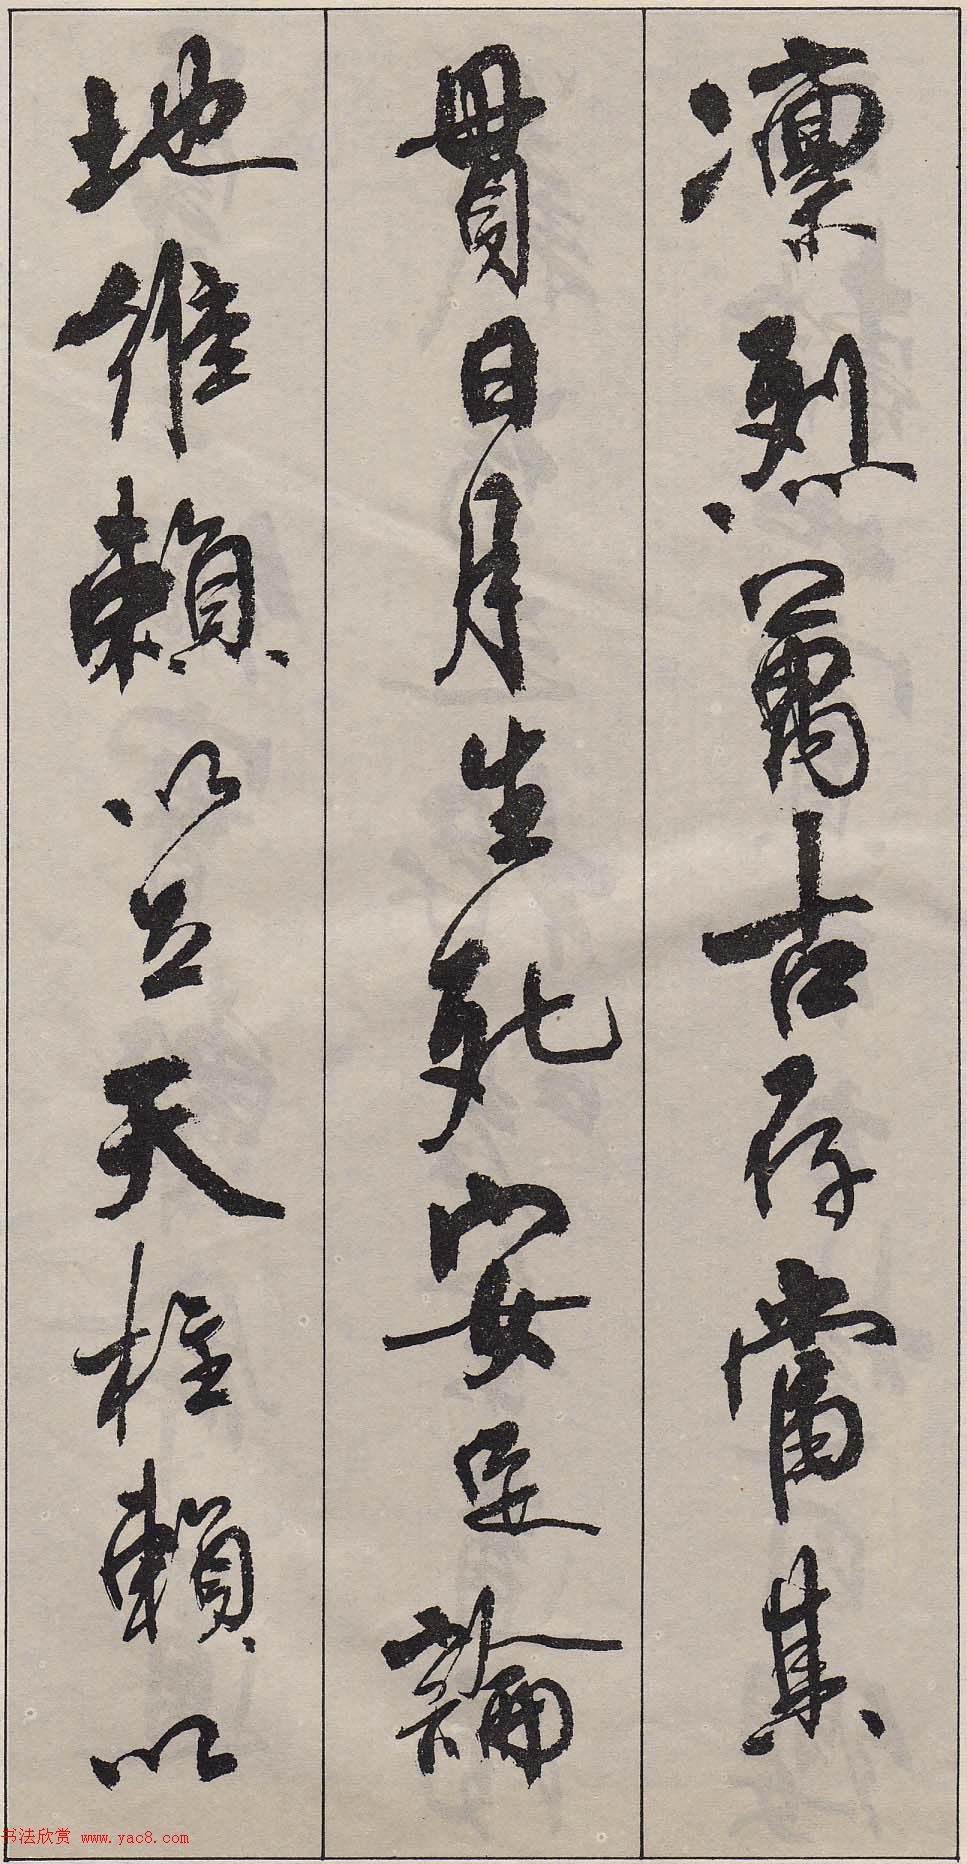 凛烈萬古存當其
貫日月生死安足論
地維賴以立天柱賴以
书法欣赏 www.yac8.com